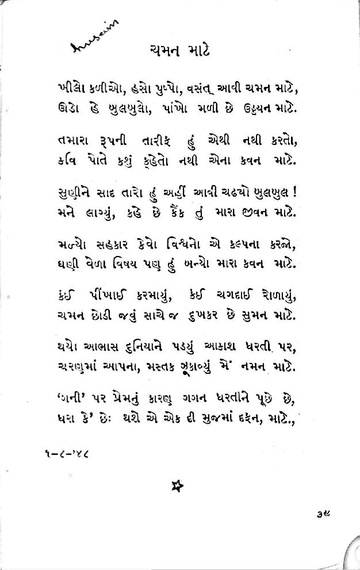 husain
ચમન માટે
ખીલો કળીઓ, હસો પુષ્પો, વસંત આવી ચમન માટે,
ઊઠો હે બુલબુલો, પાંખો મળી છે ઉડ્ડયન માટે.
તમારા રૂપની તારીફ હું એથી નથી કરતો,
કવિ પોતે કશું ક્હેતો નથી એના કવન માટે.
સુણીને સાદ તારો હું અહીં આવી ચઢ્યો બુલબુલ !
મને લાગ્યું, કહે છે કૈંક તું મારા જીવન માટે.
મળ્યો સહકાર કેવો વિશ્વનો એ કલ્પના કરજો,
ઘણી વેળા વિષય પણ હું બન્યો મારા કવન માટે.
કંઈ પીંખાઈ કરમાયું, કંઈ ચગદાઈ રોળાયું,
ચમન છોડી જવું સાચે જ દુખકર છે સુમન માટે.
થયો આભાસ દુનિયાને પડ્યું આકાશ ધરતી પર,
ચરણમાં આપના, મસ્તક ઝૂકાવ્યું મેં નમન માટે.
‘ગની’ પર પ્રેમનું કારણ ગગન ધરતીને પૂછે છે,
ધરા કે’ છેઃ થશે એ એક દી મુજમાં દફન, માટે.,
૧-૮-’૪૮
૩૯